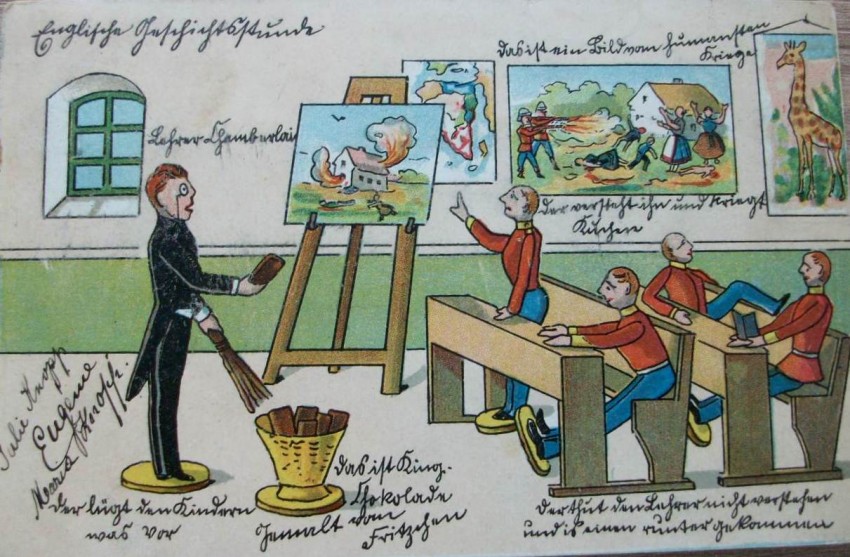 Englische Geschichtsstunde
das ist ein Bild vom humansten
Kriege
Lehrer Chamberlain
der versteht ihn und kriegt
Kuchen
Julie Knopp
Eugenie
Knopf.
der lügt den Kindern
was vor
das ist King-
Chokolade
Gemalt vom
Fritzchen
der thut den Lehrer nicht verstehen
und is einen runter gekommen